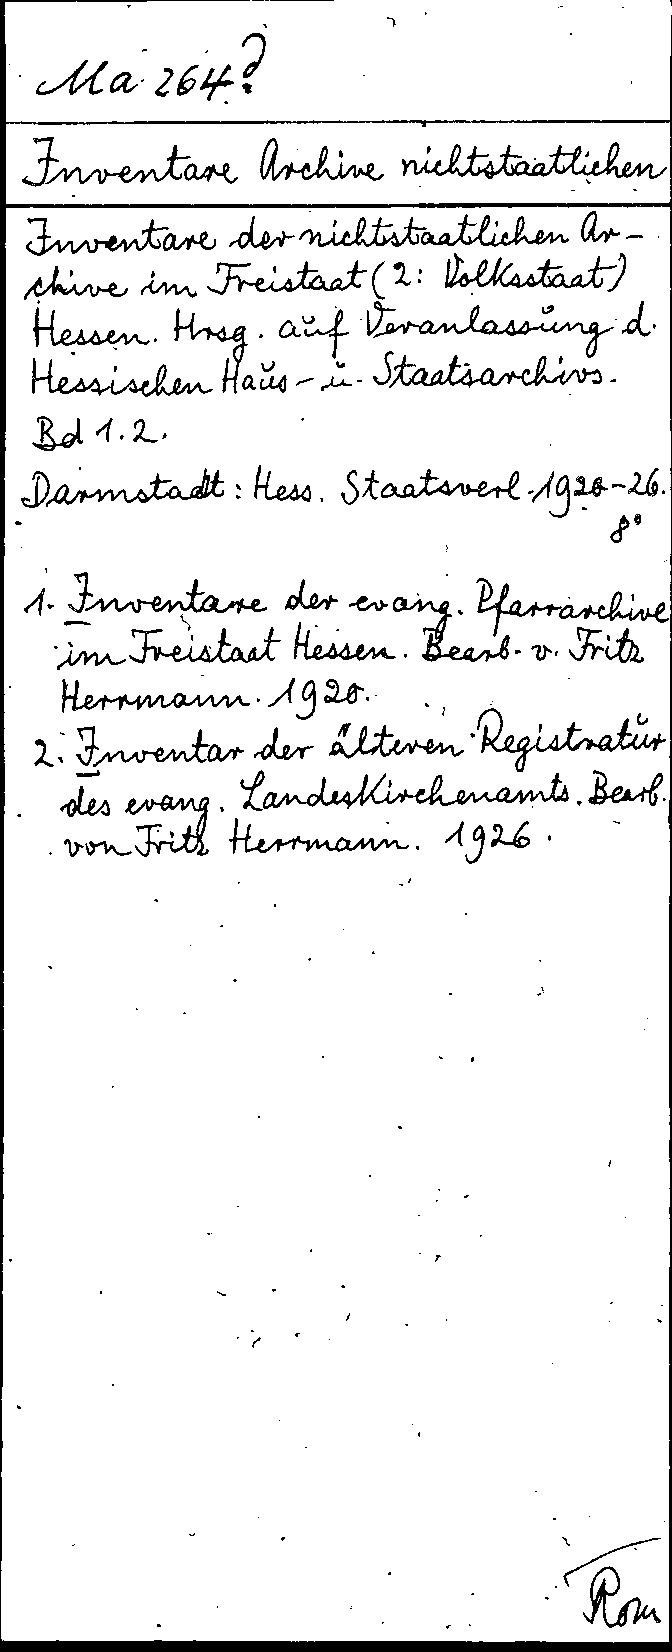 Ma 264?
Inventare Archive nichtstaatlichen
Inventare der nichtstaatlichen Ar-
chive im Freistaat (2: Volksstaat)
Hessen. Hrsg. auf Veranlassung d.
Hessischen Haus- u. Staatsarchivs.
Bd 1.2.
Darmstadt: Hess. Staatsverl. 1920-26.
8°
1. Inventare der evang. Pfarrarchive
im Freistaat Hessen. Bearb. v. Fritz
Herrmann. 1920.
2. Inventar der älteren Registratur
des evang. Landeskirchenamts. Bearb.
von Fritz Herrmann. 1926.
Rom